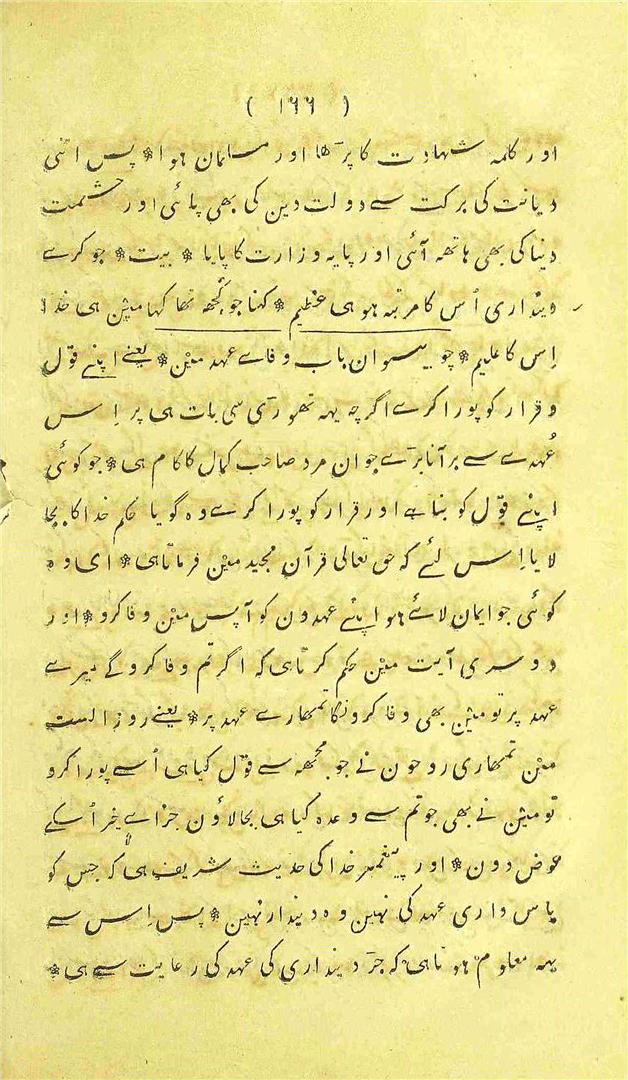 ( ۱۶۶ )
اور کلمہ شہادت کا پڑھا اور مسلمان ہوا * پس اتنی
دیانت کی برکت سے دولت دین کی بھی پائی اور حشمت
دنیا کی بھی ہاتھہ آئی اور پایہ وزارت کا پایا * بیت * جو کرے
دینداری اُس کا مرتبہ ہو ہی عظیم * کہنا جو کچھ تھا کہا میں ہی خدا
اِس کا علیم * چوبیسوان باب وفاے عہد میں * یعنے اپنے قول
و قرار کو پورا کرے اگرچہ یہہ تھوڑی سی بات ہی پر اِس
عُہدے سے بر آنا بڑے جوان مرد صاحب کمال کا کام ہی * جو کوئی
اپنے قول کو بناہے اور قرار کو پورا کرے وہ گویا حکم خدا کا بجا
لایا اِس لئے کہ حق تعالی قرآن مجید میں فرماتا ہی * ای وہ
کوئی جو ایمان لائے ہو اپنے عہدون کو آپس میں وفا کرو * اور
دوسری آیت میں حکم کرتا ہی کہ اگر تم وفا کروگے میرے
عہد پر تو میں بھی وفا کرونگا تمھارے عہد پر * یعنے روز الست
میں تمھاری روحون نے جو مجھہ سے قول کیا ہی اُسے پورا کرو
تو میں نے بھی جو تم سے وعدہ کیا ہی بجا لاؤن جزاے خیر اُسکے
عوض دون * اور پیغمبر خدا کی حدیث شریف ہی کہ جس کو
پاس داری عہد کی نہین وہ دیندار نہین * پس اِس سے
یہہ معلوم ہوتا ہی کہ جڑ دینداری کی عہد کی رعایت سے ہی *